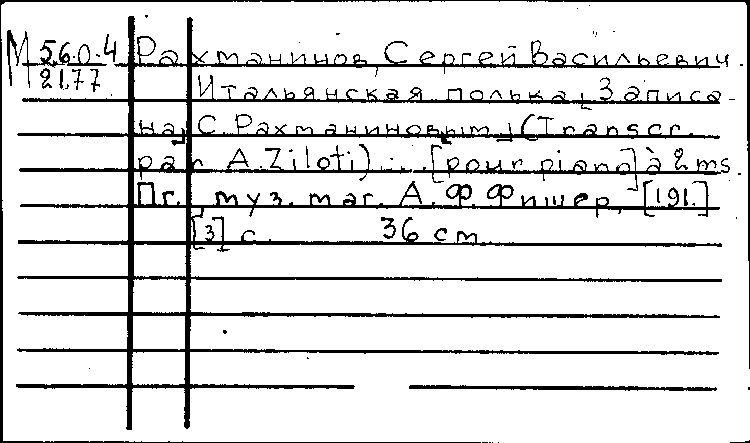 М 560-4 Рахманинов, Сергей Васильевич.
21.77 Итальянская полька [Записа-
на] С. Рахманиновым] (Transcr.
par A. Ziloti) ... [pour piano] à 2 ms.
Пг., муз. маг. А. Ф. Фишер, [191.]
[3] с. 36 см